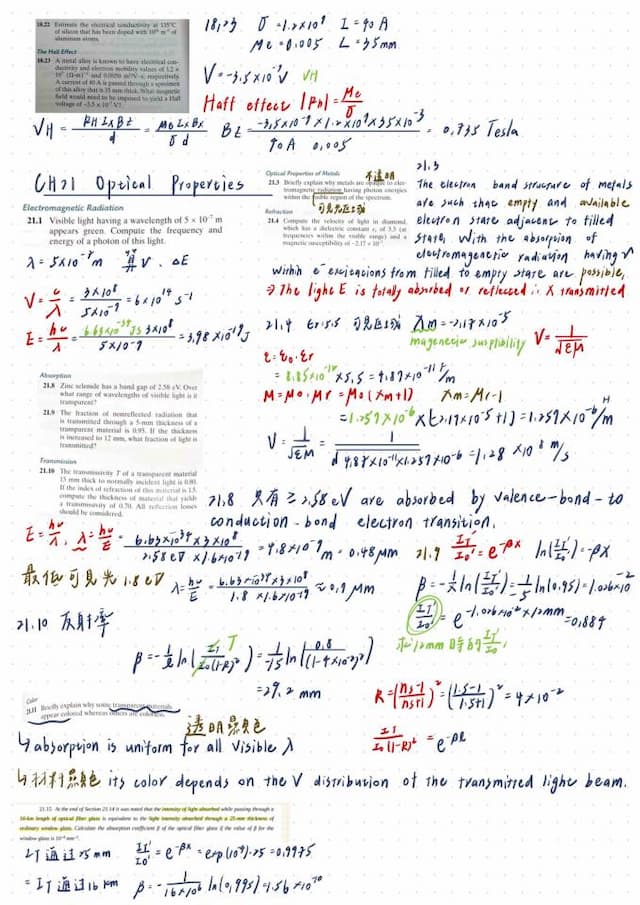 18.22 Estimate the electrical conductivity at 135°C
of silicon that has been doped with
aluminum atoms.
The Hall Effect
18.23 A metal alloy is known to have electrical con-
ductivity and electron mobility values of 1.2 ×
10⁷ (Ω-m)⁻¹ and 0.0050 m²/V-s, respectively.
A current of 40 A is passed through a specimen
of this alloy that is 35 mm thick. What magnetic
field would need to be imposed to yield a Hall
voltage of -3.5 × 10⁻⁷ V?
18.23
I = 40 A
Me = 0.005 L = 35mm
VH
Hall effect |RH| = Me/σ
VH = RH Ix Bz / d = Me Ix Bx / σ d
40 A 0.005
= 0.735 Tesla
CH21 Optical Properties
Optical Properties of Metals
不透明
21.3 Briefly explain why metals are opaque to elec-
tromagnetic radiation having photon energies
within the visible region of the spectrum.
可見光區域
Refraction
21.4 Compute the velocity of light in diamond,
which has a dielectric constant εr of 5.5 (at
frequencies within the visible range) and a
magnetic susceptibility of -2.17 × 10⁻⁵.
21.3
The electron band structure of metals
are such that empty and available
electron state adjacent to filled
state, With the absorption of
electromagenetic radiation having ν
within e⁻ excications from filled to empty state are possible,
⇒ The light E is totally absorbed or reflected ∴ X transmitted
Electromagnetic Radiation
21.1 Visible light having a wavelength of 5 × 10⁻⁷ m
appears green. Compute the frequency and
energy of a photon of this light.
λ = 5×10⁻⁷ m 算 ν . ΔE
V = c/λ = 3×10⁸ / 5×10⁻⁷ = 6×10¹⁴ s⁻¹
E = hc/λ = 6.63×10⁻³⁴ Js 3×10⁸ / 5×10⁻⁷ = 3.98×10⁻¹⁹ J
21.4 εr=5.5 可見區域 Xm = -2.17×10⁻⁵
V = 1/√εM
ε = ε₀·εr
= 8.85×10⁻¹² × 5.5 = 4.87×10⁻¹¹ F/m
M = M₀·Mr = M₀(Xm+1) Xm = Mr-1
= 1.257×10⁻⁶ × (-2.17×10⁻⁵+1) = 1.257×10⁻⁶ H/m
V = 1/√εM = 1 / √4.87×10⁻¹¹×1.257×10⁻⁶ = 1.28×10⁸ m/s
Absorption
21.8 Zinc selenide has a band gap of 2.58 eV. Over
what range of wavelengths of visible light is it
transparent?
21.9 The fraction of nonreflected radiation that
is transmitted through a 5-mm thickness of a
transparent material is 0.95. If the thickness
is increased to 12 mm, what fraction of light is
transmitted?
Transmission
21.10 The transmissivity T of a transparent material
15 mm thick to normally incident light is 0.80.
If the index of refraction of this material is 1.5,
compute the thickness of material that yields
a transmissivity of 0.70. All reflection losses
should be considered.
21.8 只有 ≥ 2.58 eV are absorbed by valence-bond-to
conduction-bond electron transition.
E = hc/λ , λ = hc/E = 6.63×10⁻³⁴ × 3×10⁸ / 2.58 eV × 1.6×10⁻¹⁹ = 4.8×10⁻⁷ m = 0.48 μm
最低可見光 1.8 eV λ = hc/E = 6.63×10⁻³⁴×3×10⁸ / 1.8 × 1.6×10⁻¹⁹ ≈ 0.7 μm
21.9 IT'/I₀' = e^-βx ln(IT'/I₀') = -βx
β = -1/x ln(IT'/I₀') = -1/5 ln(0.95) = 1.026×10⁻²
IT'/I₀' = e^-1.026×10⁻²×12mm = 0.884
求12mm 時的 IT'/I₀'
21.10 反射率
β = -1/l ln(IT/I₀(1-R)²) = -1/15 ln(0.8/(1-4×10⁻²)²)
= 29.2 mm
R = (ns-1/ns+1)² = (1.5-1/1.5+1)² = 4×10⁻²
IT/I₀(1-R)² = e^-βl
Color
21.11 Briefly explain why some transparent materials
appear colored whereas others are colorless.
透明顏色
↳ absorption is uniform for all visible λ
↳ 材料顏色 its color depends on the V distribution of the transmitted light beam.
21.15 At the end of Section 21.14 it was noted that the intensity of light absorbed while passing through a
16-km length of optical fiber glass is equivalent to the light intensity absorbed through a 25-mm thickness of
ordinary window glass. Calculate the absorption coefficient β of the optical fiber glass if the value of β for the
window glass is 10⁻⁴ mm⁻¹.
IT 通過 25 mm IT'/I₀' = e^-βx = exp(10⁻⁴)·25 = 0.9975
= IT 通過 16 km